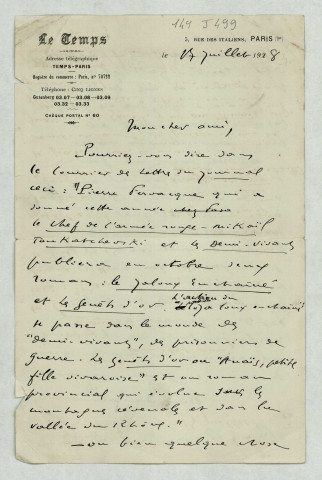 144 J 499
Le Temps
5, RUE DES ITALIENS, PARIS (9e)
Adresse télégraphique
TEMPS-PARIS
le 17 juillet 1928
Registre du commerce : Paris, n°
Téléphone : CINQ LIGNES
Gutenberg 03.07 — 03.08 — 03.09
03.32 — 03.33
CHÈQUE POSTAL N° 60
Mon cher ami,
Pourriez-vous dire dans
le Courrier des Lettres du journal
ceci : "Pierre Fervacque qui a
donné cette année
le chef de l'armée rouge - Mikaïl
Toukatchevski et les Demi-vivants
publiera en octobre deux
romans : le jaloux enchaîné
et les Genêts d'or. L'action du jaloux enchaîné
se passe dans le monde des
"demi-vivants", des prisonniers de
guerre. Les genêts d'or ou "Anaïs, petite
fille vivaroise" est un roman
provincial qui évolue sur les
montagnes cévenoles et dans la
vallée du Rhône."
— ou bien quelque chose